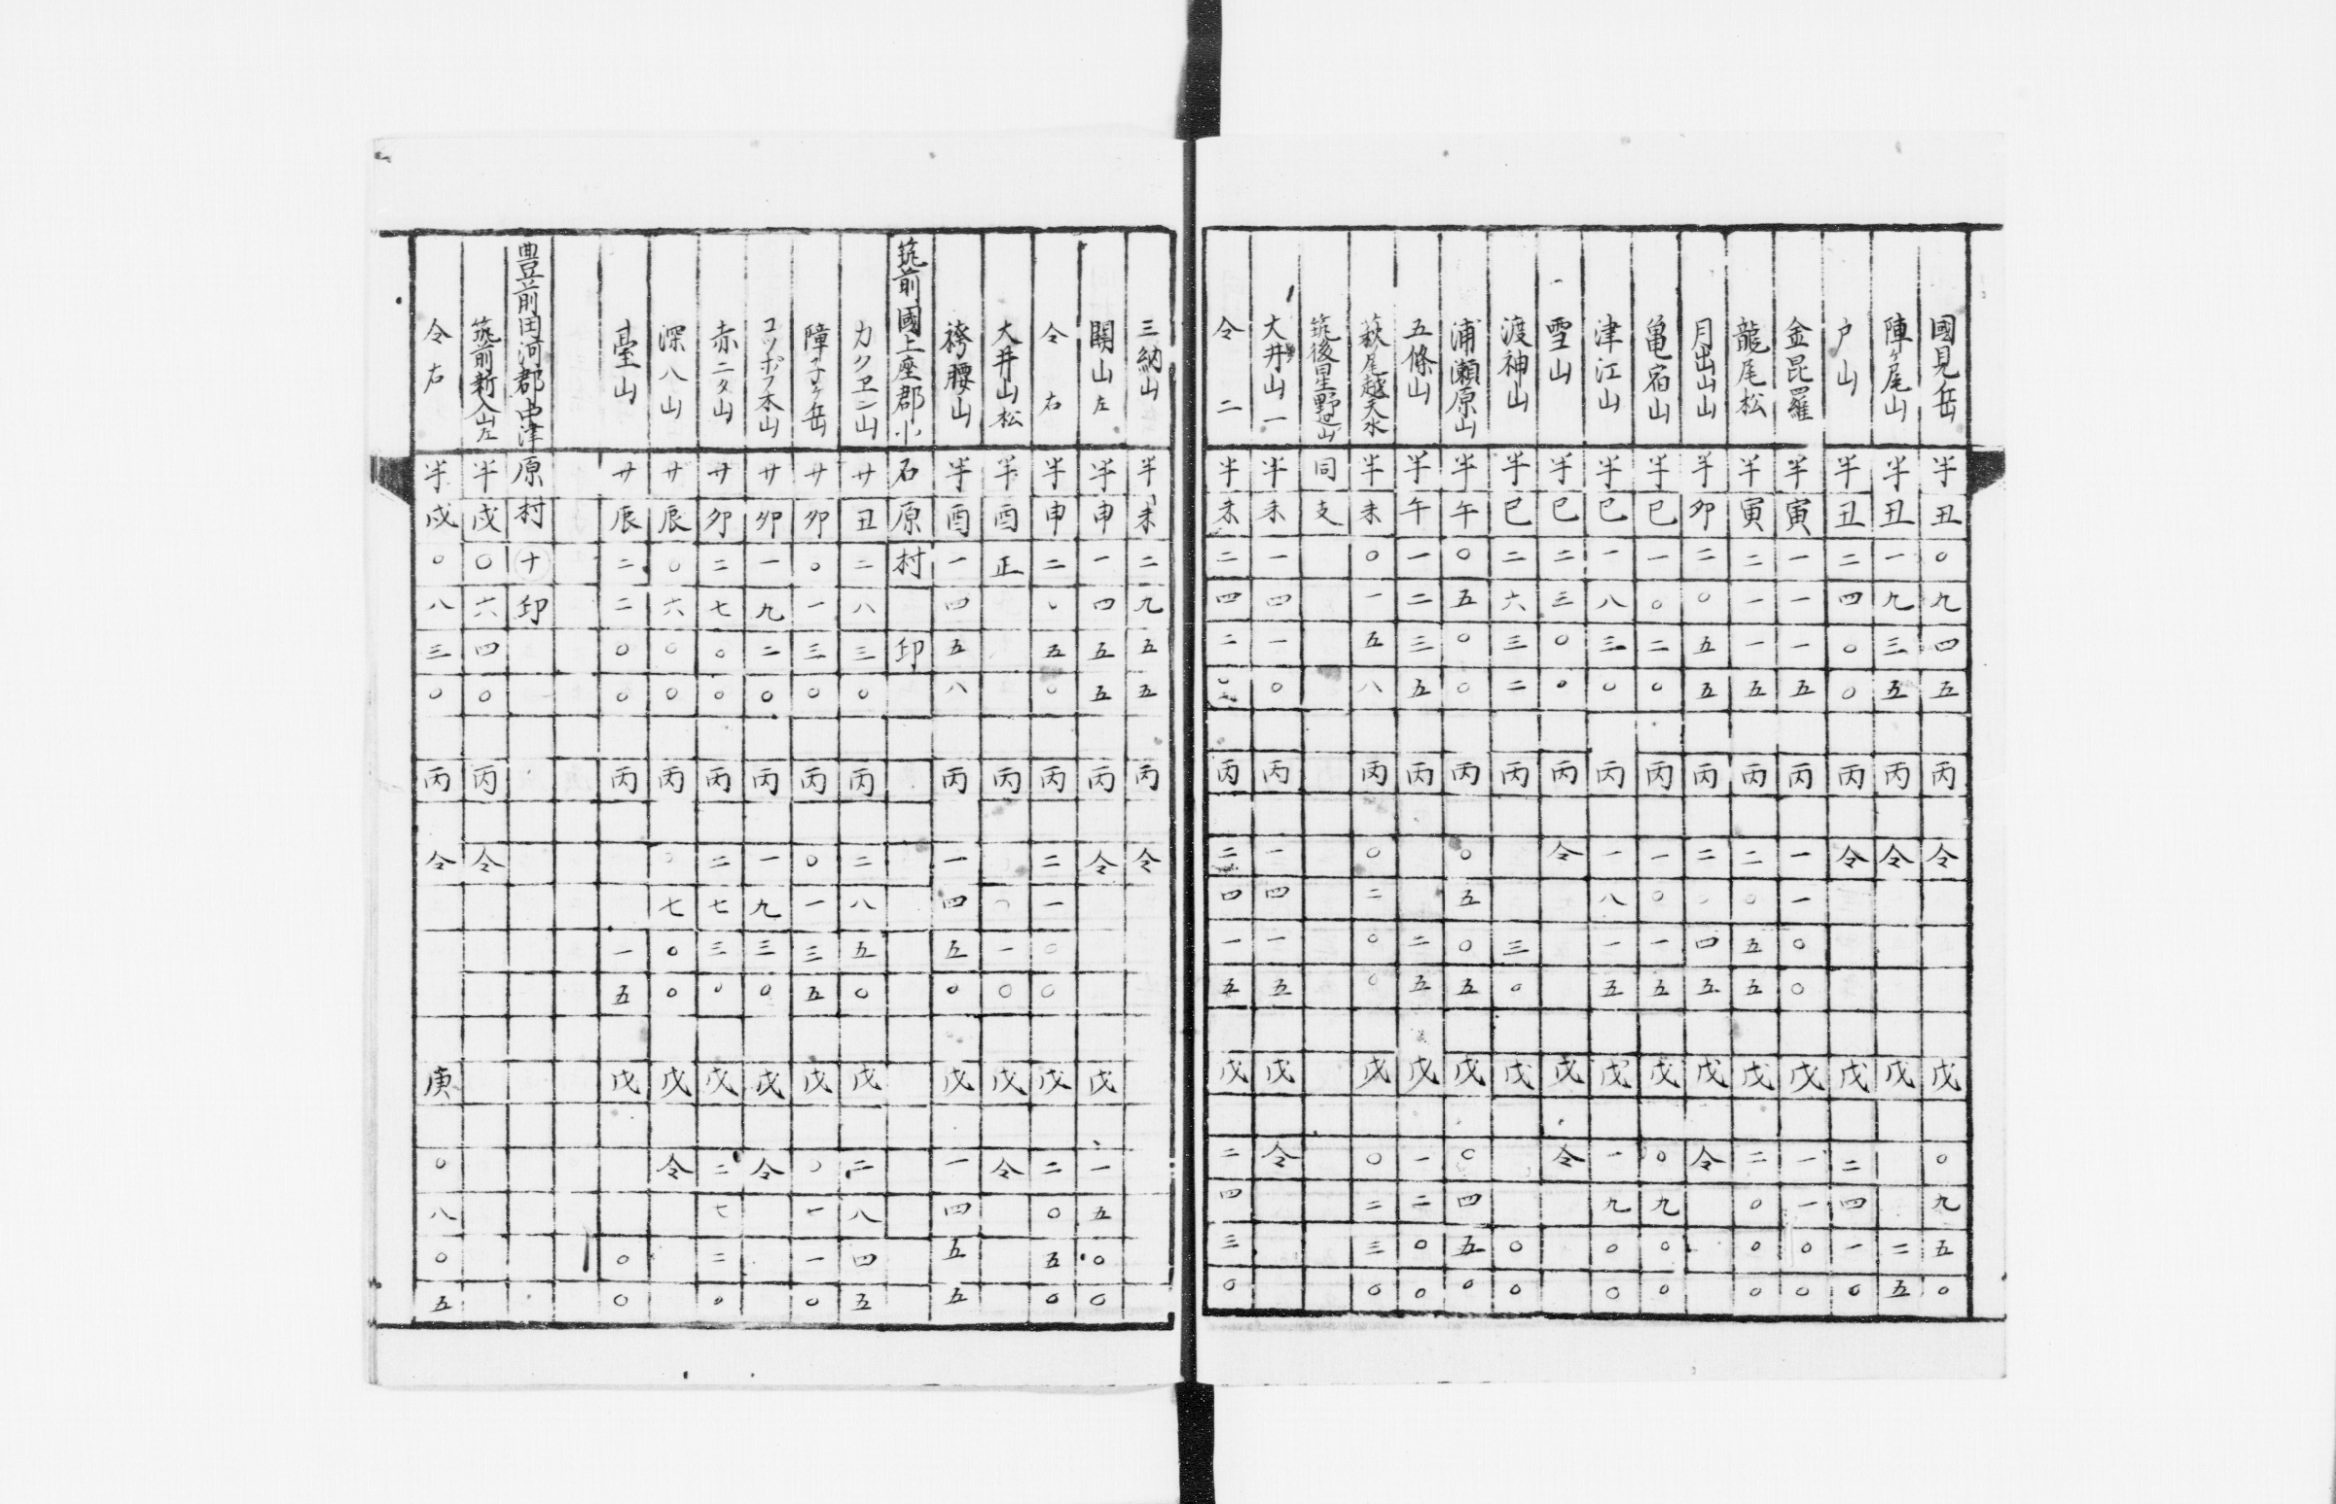 國見岳 半丑〇九四五 丙 令 戊 〇九五〇
陣ヶ尾山 半丑一九三五 丙 令 戊 二五
戸山 半丑二四〇〇 丙 令 戊 二四一〇
金昆羅 半寅一一一五 丙 一一〇〇 戊 一一〇〇
龍尾松 半寅二一一五 丙 二〇五五 戊 二〇〇〇
月出山山 半卯二〇五五 丙 二〇四五 戊 令
亀宿山 半巳一〇二〇 丙 一〇一五 戊 〇九〇〇
津江山 半巳一八三〇 丙 一八一五 戊 一九〇〇
雪山 半巳二三〇〇 丙 令 戊 令
渡神山 半巳二六三二 丙 三〇 戊 〇〇
浦瀬原山 半午〇五〇〇 丙 〇五〇五 戊 〇四五〇
五條山 半午一二三五 丙 二五 戊 一二〇〇
萩尾越天水 半未〇一五八 丙 〇二〇〇 戊 〇二三〇
筑後星野山 同支
大井山一 半未一四一〇 丙 一四一五 戊 令
令二 半未二四二〇 丙 二四一五 戊 二四三〇
三納山 半未二九五五 丙 令
関山左 半申一四五五 丙 令 戊 一五〇〇
令右 半申二〇五〇 丙 二一〇〇 戊 二〇五〇
大井山松 半酉正 丙 〇〇一〇 戊 令
袴腰山 半酉一四五八 丙 一四五〇 戊 一四五五
筑前國上座郡小石原村 印
カクヱン山 廿丑二八三〇 丙 二八五〇 戊 二八四五
障子ヶ岳 廿卯〇一三〇 丙 〇一三五 戊 〇一一〇
コツポフ木山 廿卯一九二〇 丙 一九三〇 戊 令
赤ニタ山 廿卯二七〇〇 丙 二七三〇 戊 二七二〇
深八山 廿辰〇六〇〇 丙 〇七〇〇 戊 令
臺山 廿辰二二〇〇 丙 一五 戊 〇〇
豊前田河郡中津原村 十 印
筑前新入山左 半戌〇六四〇 丙 令
令右 半戌〇八三〇 丙 令 庚 〇八〇五